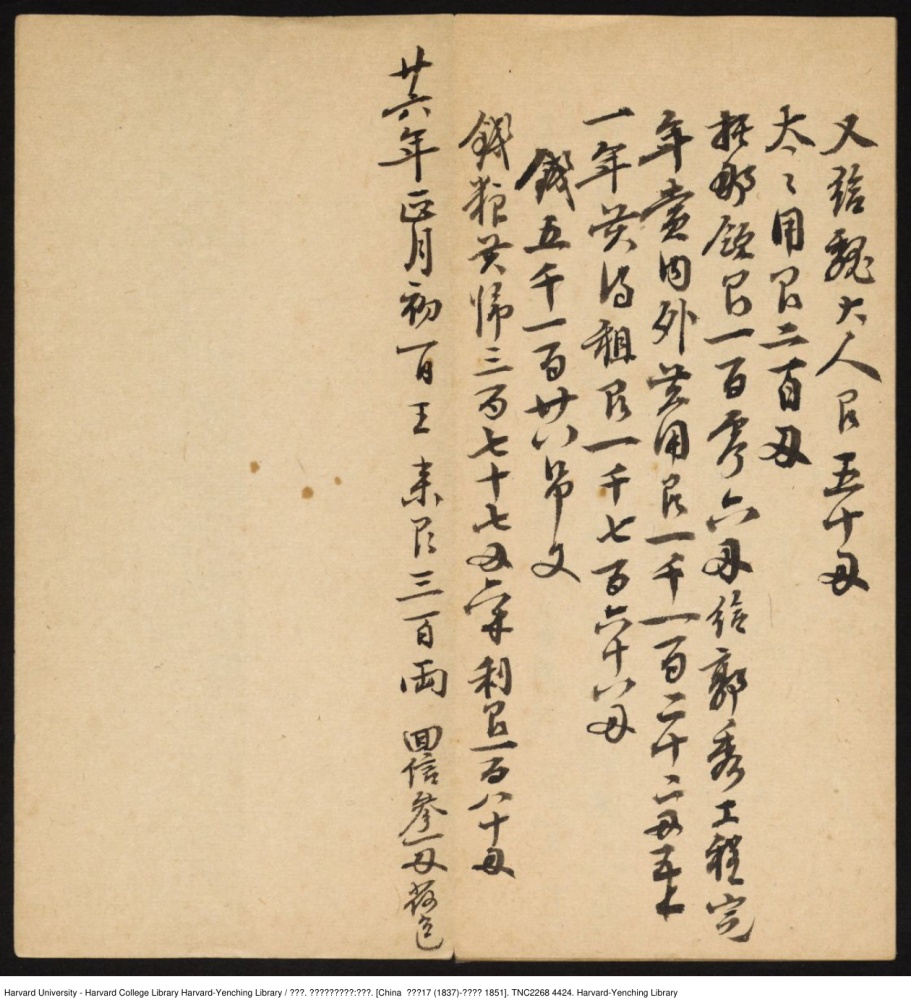 又給魏大人艮五十刄
太々用艮二百刄
艮一百零六刄給郭秀工程完
年內外共用艮一千一百二十二刄五
一年共得租艮一千七百六十八刄
錢五千一百廿八吊文
錢粮共歸三百七十七刄利艮一百八十刄
廿六年正月初一日王来艮三百両 回信叁刄
Harvard University - Harvard College Library Harvard-Yenching Library / ???. ?????????:???. [China ???17 (1837)-???? 1851]. TNC2268 4424. Harvard-Yenching Library